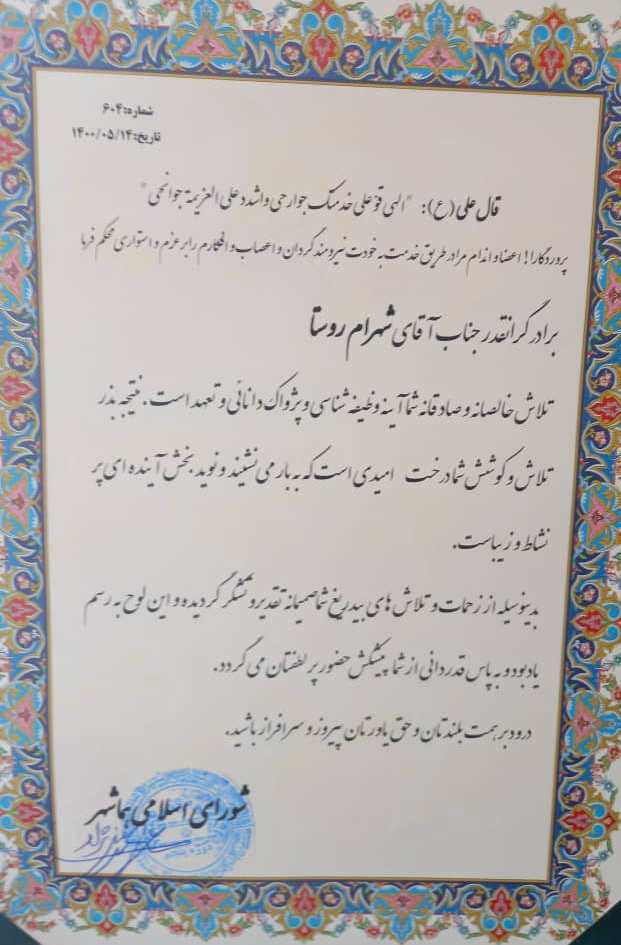 شماره:۶۰۴
تاریخ:۱۴۰۰/۰۵/۱۴
قال علی (ع): "الهی قوّ علی خدمتک جوارحی واشدد علی العزیمة جوانحی"
پروردگارا! اعضا و اندام مرا در طریق خدمت به خودت نیرومند گردان و اعصاب و افکارم را بر عزم و استواری محکم فرما
برادر گرانقدر جناب آقای شهرام روستا
تلاش خالصانه و صادقانه شما آینه وظیفه شناسی و پژواک دانائی و تعهد است. نتیجه بذر
تلاش و کوشش شما درخت امیدی است که به بار می نشیند و نوید بخش آینده ای پر
نشاط و زیباست.
بدینوسیله از زحمات و تلاش های بیدریغ شما صمیمانه تقدیر و تشکر گردیده و این لوح به رسم
یادبود و به پاس قدردانی از شما پیشکش حضور پر لطفتان می گردد.
درود بر همت بلندتان و حق یاورتان پیروز و سرافراز باشید.
شورای اسلامی هماشهر